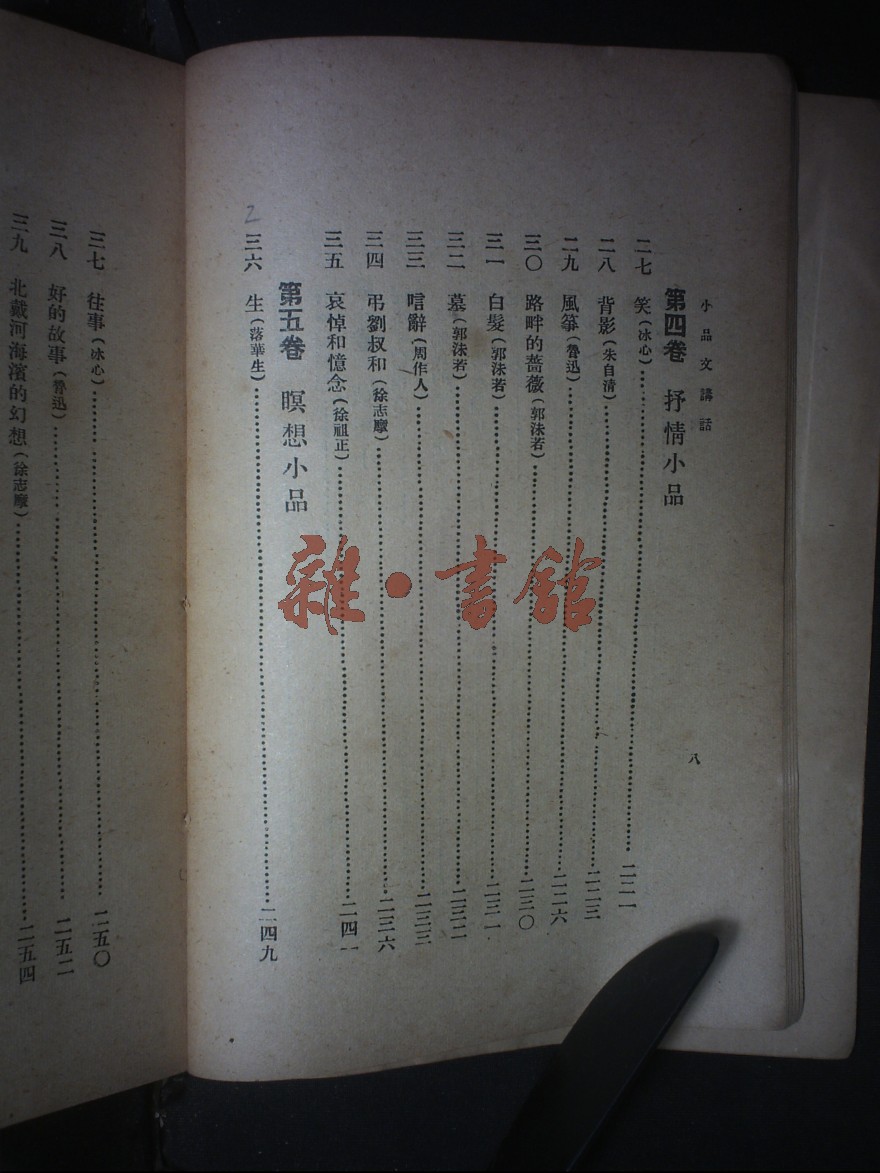 小品文講話
八
第四卷 抒情小品
二七 笑(冰心)…………二二一
二八 背影(朱自清)…………二二三
二九 風箏(魯迅)…………二二六
三〇 路畔的薔薇(郭沫若)…………二三〇
三一 白髮(郭沫若)…………二三一
三二 墓(郭沫若)…………二三二
三三 唁辭(周作人)…………二三三
三四 弔劉叔和(徐志摩)…………二三六
三五 哀悼和憶念(徐祖正)…………二四一
第五卷 暝想小品
三六 生(落華生)…………二四九
2
三七 往事(冰心)…………二五〇
三八 好的故事(魯迅)…………二五二
三九 北戴河海濱的幻想(徐志摩)…………二五四
雜·書館